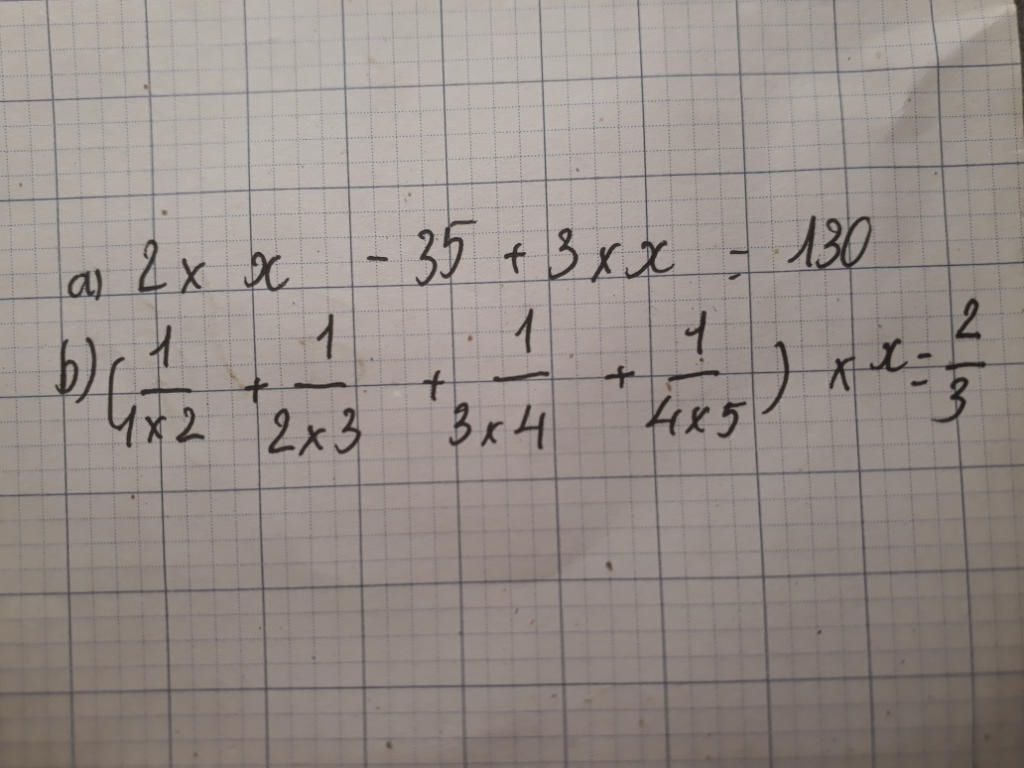 a) 2 × x - 35 + 3 × x = 130
b) (1/(1×2) + 1/(2×3) + 1/(3×4) + 1/(4×5)) × x = 2/3